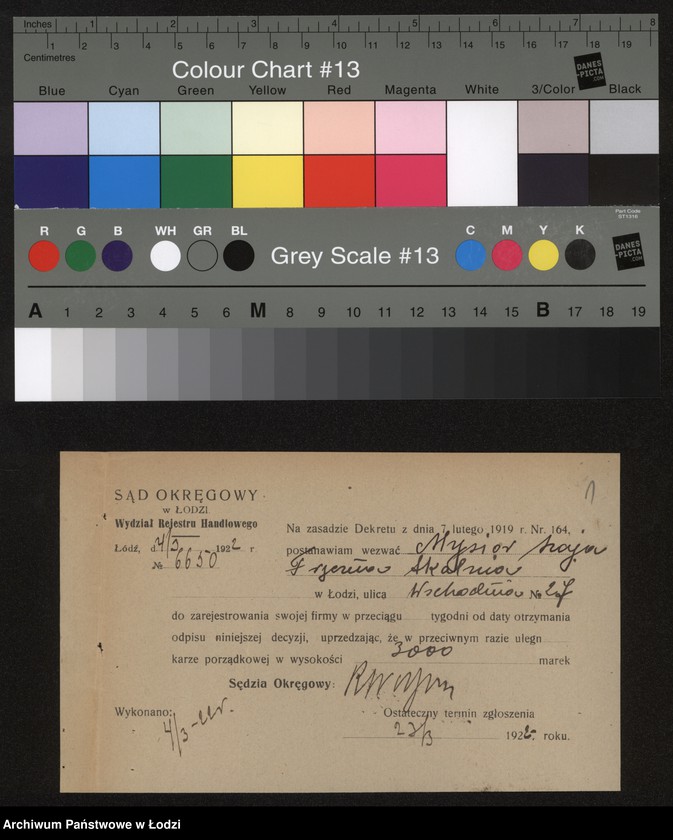 Inches 1 2 3 4 5 6 7 8
Centimetres 1 2 3 4 5 6 7 8 9 10 11 12 13 14 15 16 17 18 19
Colour Chart #13
DANES-PICTA.COM
Blue Cyan Green Yellow Red Magenta White 3/Color Black
Part Code
ST1316
R G B WH GR BL Grey Scale #13 C M Y K
DANES-PICTA.COM
A 1 2 3 4 5 6 M 8 9 10 11 12 13 14 15 B 17 18 19
1
SĄD OKRĘGOWY
w ŁODZI
Wydział Rejestru Handlowego
Łódź, d. 4/3 1922 r
№ 6650
Na zasadzie Dekretu z dnia 7 lutego 1919 r. Nr. 164,
postanawiam wezwać Mysior
w Łodzi, ulica Wschodnia № 27
do zarejestrowania swojej firmy w przeciągu tygodni od daty otrzymania
odpisu niniejszej decyzji, uprzedzając, że w przeciwnym razie ulegn
karze porządkowej w wysokości 3000 marek
Sędzia Okręgowy:
Wykonano: 4/3
Ostateczny termin zgłoszenia
23/3 1922 roku.
Archiwum Państwowe w Łodzi